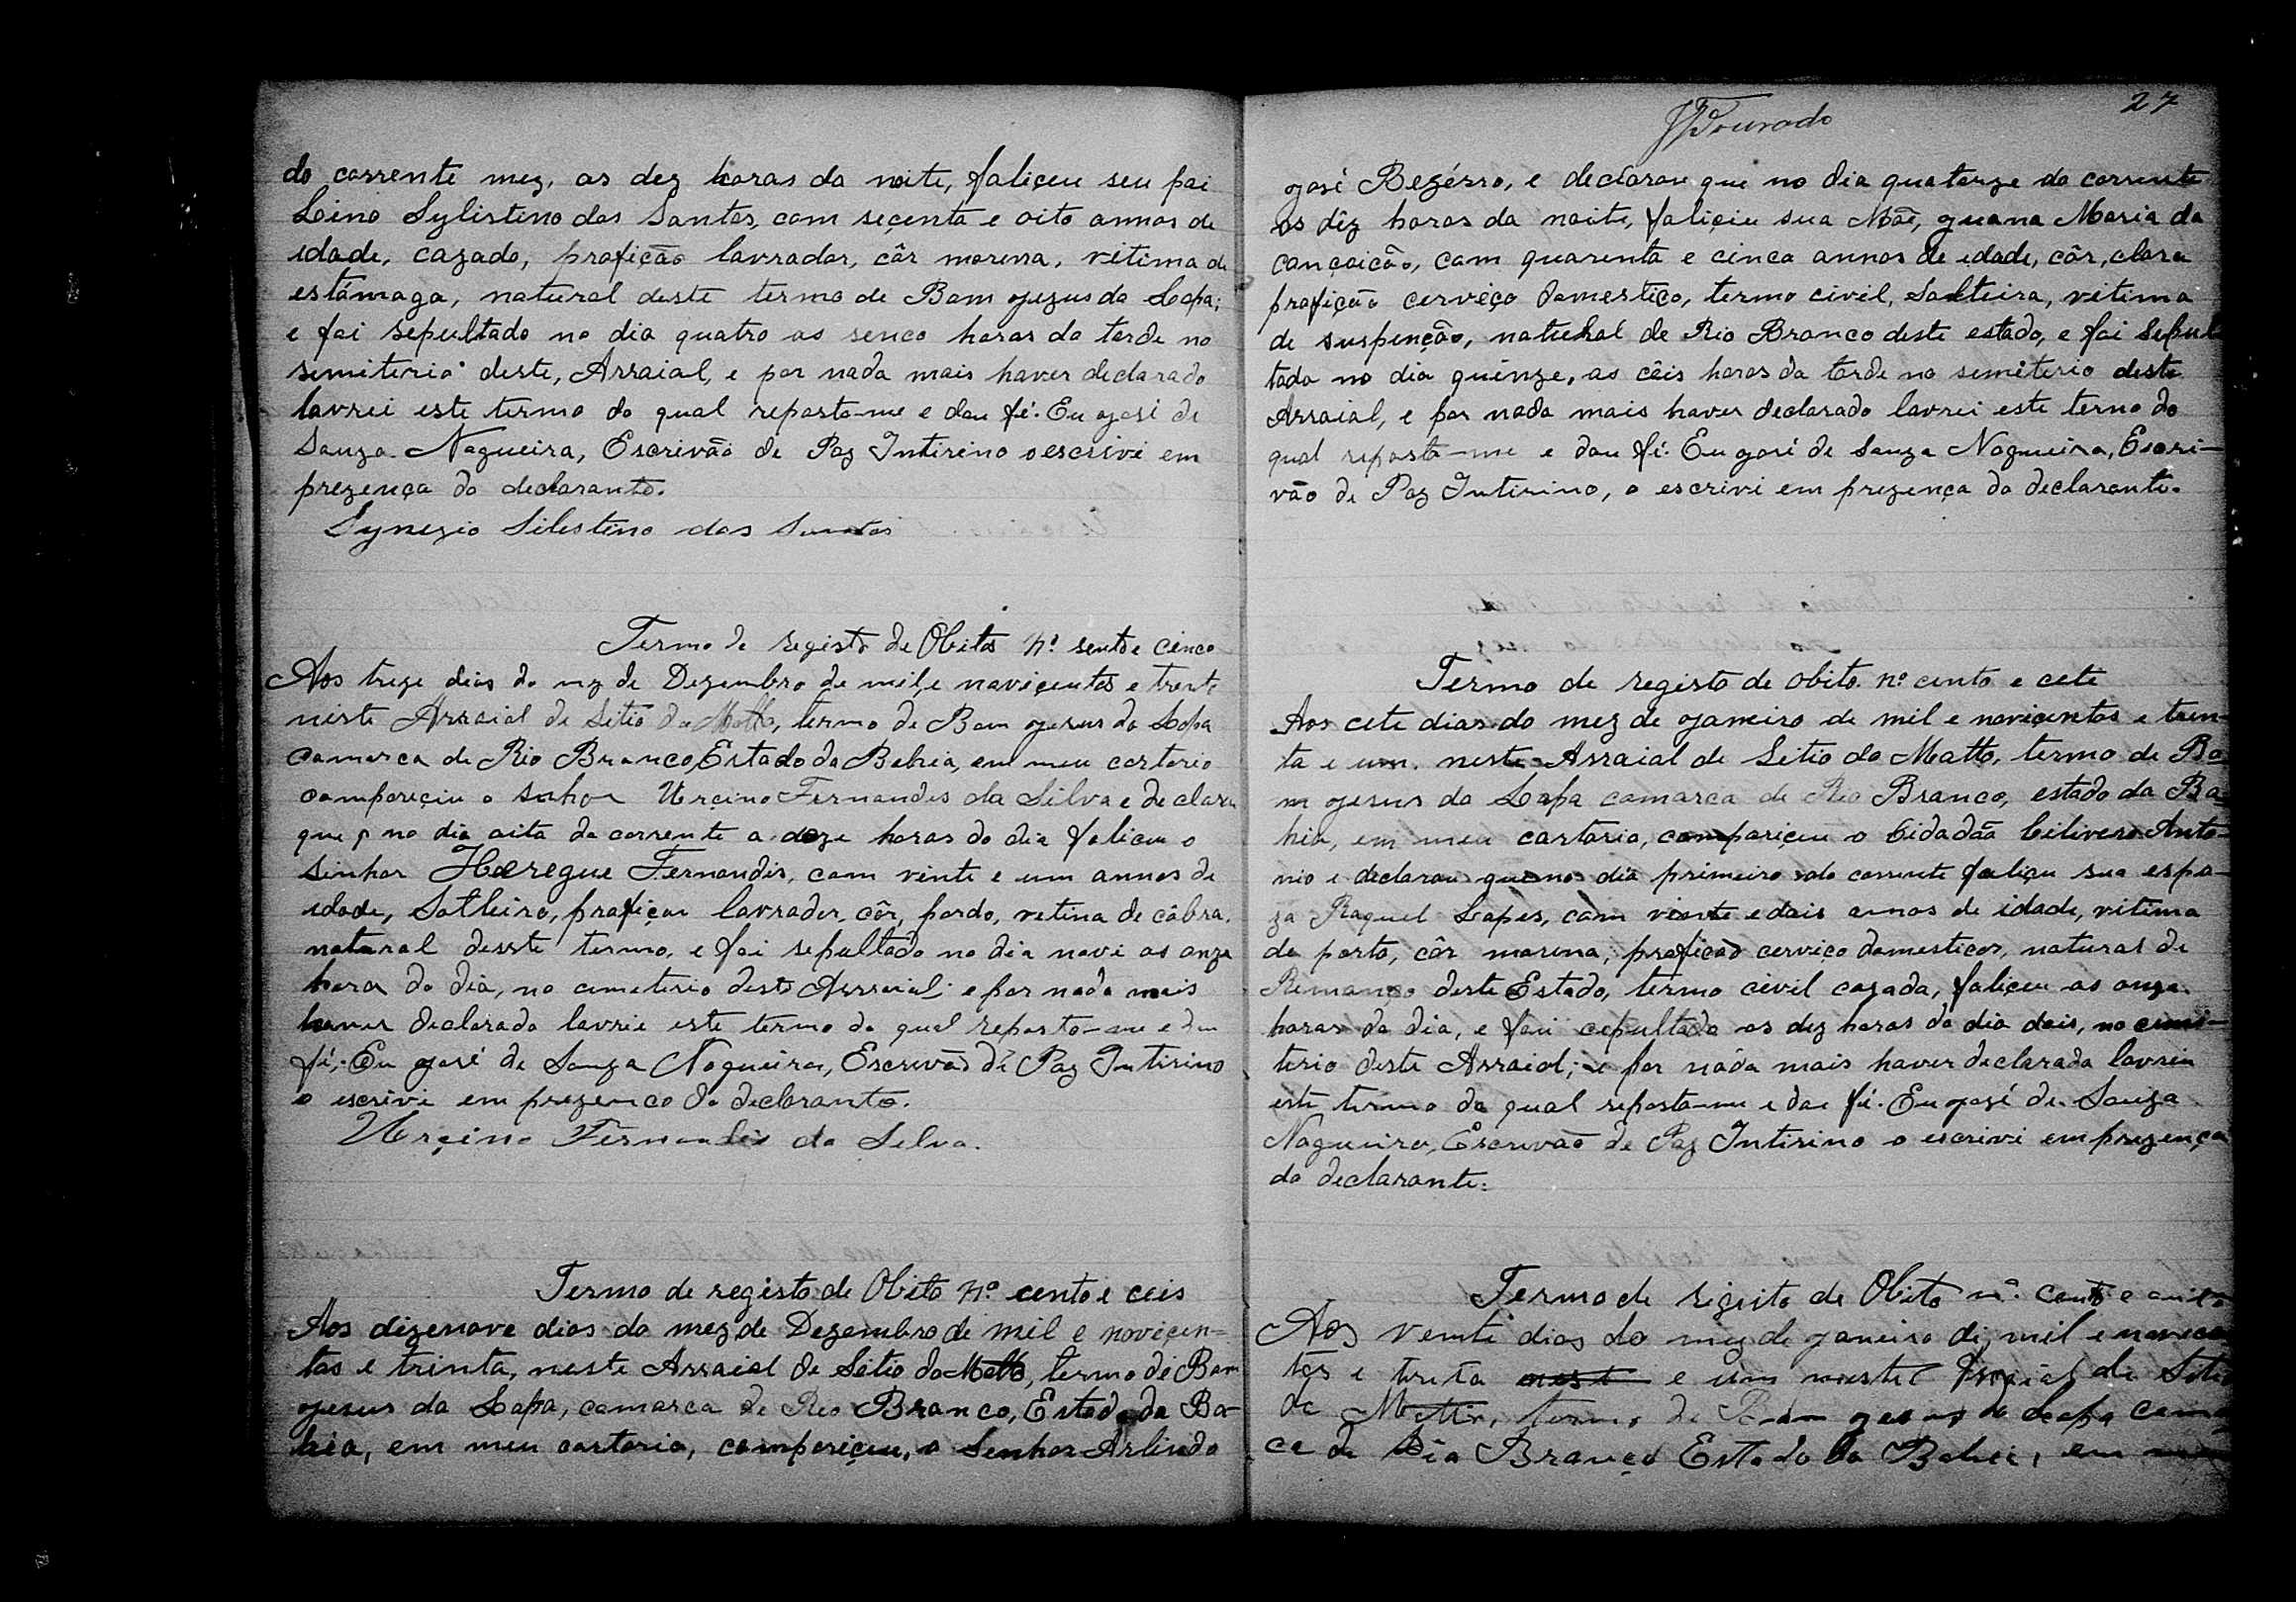 do corrente mez, as dez horas da noite, faliçeu seu pai
Lino Sylistino dos Santos, com seçenta e oito annos de
idade, cazado, profição lavrador, côr morena, vitima de
estómago, natural deste termo de Bom Jezus da Lapa;
e foi sepultado no dia quatro as senco horas da tarde no
semiterio deste, Arraial, e por nada mais haver declarado
lavrei este termo do qual reporto-me e dou fé. Eu José de
Souza Nogueira, Escrivão de Paz Intirino o escrivi em
prezença do declarante.
Synezio Silestino dos Santos
Termo de registo de Obitos nº sento e cinco
Aos treze dias do mz de Dezembro de mil e noviçentos e trenta
niste Arraial de Sitio do Matto, termo de Bom Jesus da Lapa
Comarca de Rio Branco, Estado da Bahia, em meu cartorio
compareçiu o snhor Urcino Fernandes da Silva e declarou
que no dia oito do corrente a doze horas do dia faliceu o
Sinhor Fernandis, com vinte e um annos de
idade, Sotleiro, profiçao lavrador, côr, pardo, vetina de cóbra,
natural desste termo, e foi sepultado no dia novi as onze
hora do dia, no cimeterio deste Arraial; e por nada mais
haver declarado lavrie este termo do qual reporto-me e dou
fé. Eu José de Souza Nogueira, Escrivão de Paz Intirino
o escrivi em prezenco do declarante.
Urçino Fernandis da Silva.
Termo de registo de Obito nº cento e ceis
Aos dizenove dias do mez de Dezembro de mil e noviçen-
tos e trinta, neste Arraial de Sitio do Matto, termo de Bom
Jesus da Lapa, comarca de Rio Branco, Estado da Ba-
hia, em meu cartorio, compariçeu, o Senhor Arlindo
27
JDourado
José Bezérro, e declarou que no dia quatorze do corrente
as dêz horas da noite, faliçiu sua Mãe, Juana Maria da
Conçoicão, com quarenta e cinco annos de idade, côr, clara
profição cerviço domestiço, termo civil, Solteira, vitima
de suspenção, natural de Rio Branco deste estado, e foi Sepul
tada no dia quinze, as cêis horas da tarde no semiterio deste
Arraial, e por nada mais haver declarado lavrei este termo do
qual reposto-me e dou fé. Eu José de Souza Nogueira, Escri-
vão de Paz Intirino, o escrivi em prezença do declarante.
Termo de registo de obito. nº cento e cete
Aos cete dias do mez de Janeiro de mil e noviçentos e trin-
ta e um. neste Arraial de Sitio do Matto, termo de Bo-
m Jesus da Lapa comarca de Rio Branco, estado da Ba-
hia, em meu cartorio, compariçeu o Cidadão Anto-
nio e declarou que no dia primeiro do corrente faliçeu sua espo-
za Raquel Lopes, com vinte e dois annos de idade, vitima
de parto, côr morena, profição cerviço domesticos, natural de
Remanso deste Estado, termo civil cazada, faliçeu as onze
horas do dia, e foi cepultada as dez horas do dia dois, no cimi-
terio deste Arraiol; e por náda mais haver declarada lavrei
este termo do qual reposto-me e dou fé. Eu José de Souza
Nogueira, Escrivão de Paz Intirino o escrivi em prezença
do declarante.
Termo de rigisto de Obito nº cento e
Aos vente dias do mez de Janeiro de mil e
tos e treta e um neste Arraial de Sitio
do Matto, termo de Bom Jesus da Lapa
ca de Rio Branco Estado da Bahia, em